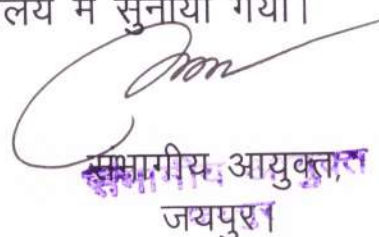 लय में सुनाया गया।
संभागीय आयुक्त,
जयपुर।